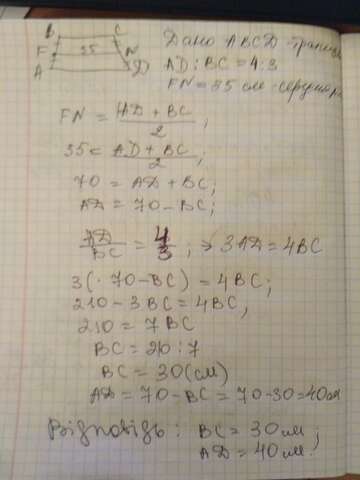 B C Дано ABCD - трапеція
F 35 N AD : BC = 4 : 3
A D FN = 35 см -
FN = AD + BC / 2 ;
35 = AD + BC / 2 ;
70 = AD + BC ;
AD = 70 - BC ;
AD / BC = 4 / 3 ; => 3AD = 4BC
3(· 70 - BC) = 4BC ;
210 - 3BC = 4BC,
210 = 7BC
BC = 210 : 7
BC = 30 (см)
AD = 70 - BC = 70 - 30 = 40 см
Відповідь : BC = 30 см ;
AD = 40 см.